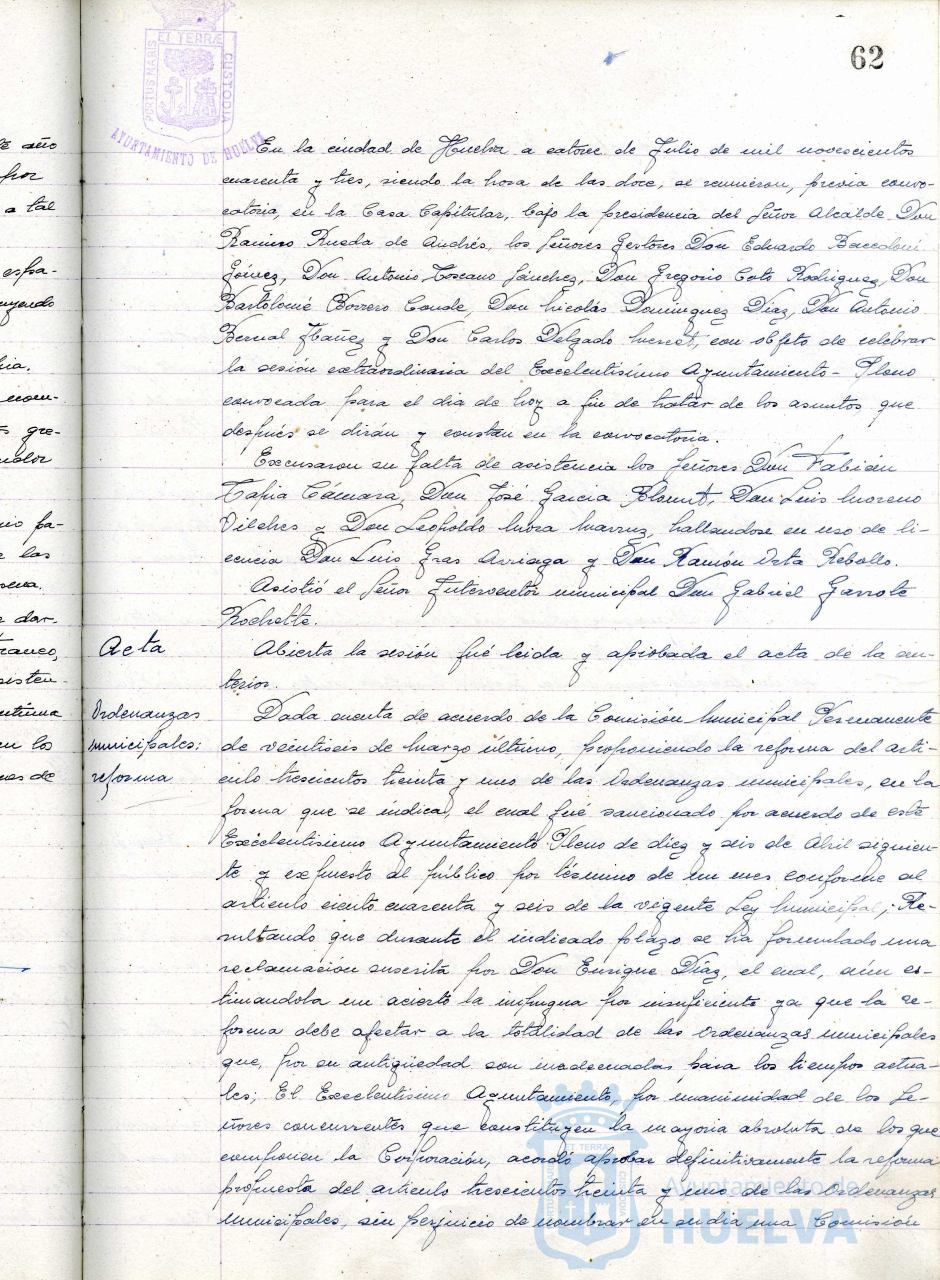 62
PORTUS MARIS ET TERRÆ CUSTODIA
AYUNTAMIENTO DE HUELVA
En la ciudad de Huelva a catorce de Julio de mil novescientos
cuarenta y tres, siendo la hora de las doce, se reunieron, previa convo-
catoria, en la Casa Capitular, bajo la presidencia del Señor Alcalde Don
Ramiro Rueda de Andrés, los Señores Gestores Don Eduardo
Gómez, Don Antonio Toscano Sánchez, Don Gregorio Coto Rodriguez, Don
Bartolomé Borrero Conde, Don Nicolás Dominguez Diaz, Don Antonio
Bernal Ibañez y Don Carlos Delgado, con objeto de celebrar
la sesión extraordinaria del Excelentisimo Ayuntamiento-Pleno
convocada para el dia de hoy a fin de tratar de los asuntos que
después se dirán y constan en la convocatoria.
Excusaron su falta de asistencia los Señores Don Fabián
Tapia Cámara, Don José Garcia, Don Luis Moreno
Vilches y Don Leopoldo Mora, hallandose en uso de li-
cencia Don Luis Gras Arriaga y Don Ramón Orta Rebollo.
Asistió el Señor Interventor municipal Don Gabriel Garrote
Rochette.
Acta
Abierta la sesión fué leida y aprobada el acta de la an-
terior.
Ordenanzas
municipales;
reforma
Dada cuenta de acuerdo de la Comisión Municipal Permanente
de veintiseis de Marzo último, proponiendo la reforma del arti-
culo trescientos treinta y uno de las Ordenanzas municipales, en la
forma que se indica, el cual fué sancionado por acuerdo de este
Excelentisimo Ayuntamiento Pleno de diez y seis de Abril siguien-
te y expuesto al público por término de un mes conforme al
articulo ciento cuarenta y seis de la vigente Ley Municipal; Re-
sultando que durante el indicado plazo se ha formulado una
reclamación suscrita por Don Enrique Díaz, el cual, aún es-
timandola un acierto la impugna por insuficiente ya que la re-
forma debe afectar a la totalidad de las Ordenanzas municipales
que, por su antigüedad son inadecuadas para los tiempos actua-
les; El Excelentisimo Ayuntamiento, por unanimidad de los Se-
ñores concurrentes que constituyen la mayoria absoluta de los que
componen la Corporación, acordó aprobar definitivamente la reforma
propuesta del articulo trescientos treinta y uno de las Ordenanzas
Municipales, sin perjuicio de nombrar en su dia una Comisión
Ayuntamiento de
HUELVA